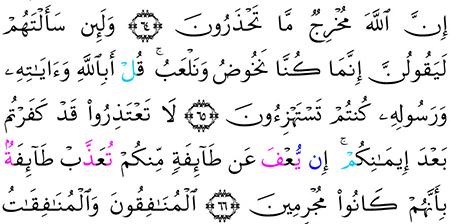 إِنَّ ٱللَّهَ مُخْرِجٌ مَّا تَحْذَرُونَ ٦٤ وَلَئِن سَأَلْتَهُمْ
لَيَقُولُنَّ إِنَّمَا كُنَّا نَخُوضُ وَنَلْعَبُ ۚ قُلْ أَبِٱللَّهِ وَءَايَـٰتِهِۦ
وَرَسُولِهِۦ كُنتُمْ تَسْتَهْزِءُونَ ٦٥ لَا تَعْتَذِرُوا۟ قَدْ كَفَرْتُم
بَعْدَ إِيمَـٰنِكُمْ ۚ إِن يُّعْفَ عَن طَآئِفَةٍ مِّنكُمْ تُعَذَّبْ طَآئِفَةٌۢ
بِأَنَّهُمْ كَانُوا۟ مُجْرِمِينَ ٦٦ ٱلْمُنَـٰفِقُونَ وَٱلْمُنَـٰفِقَـٰتُ